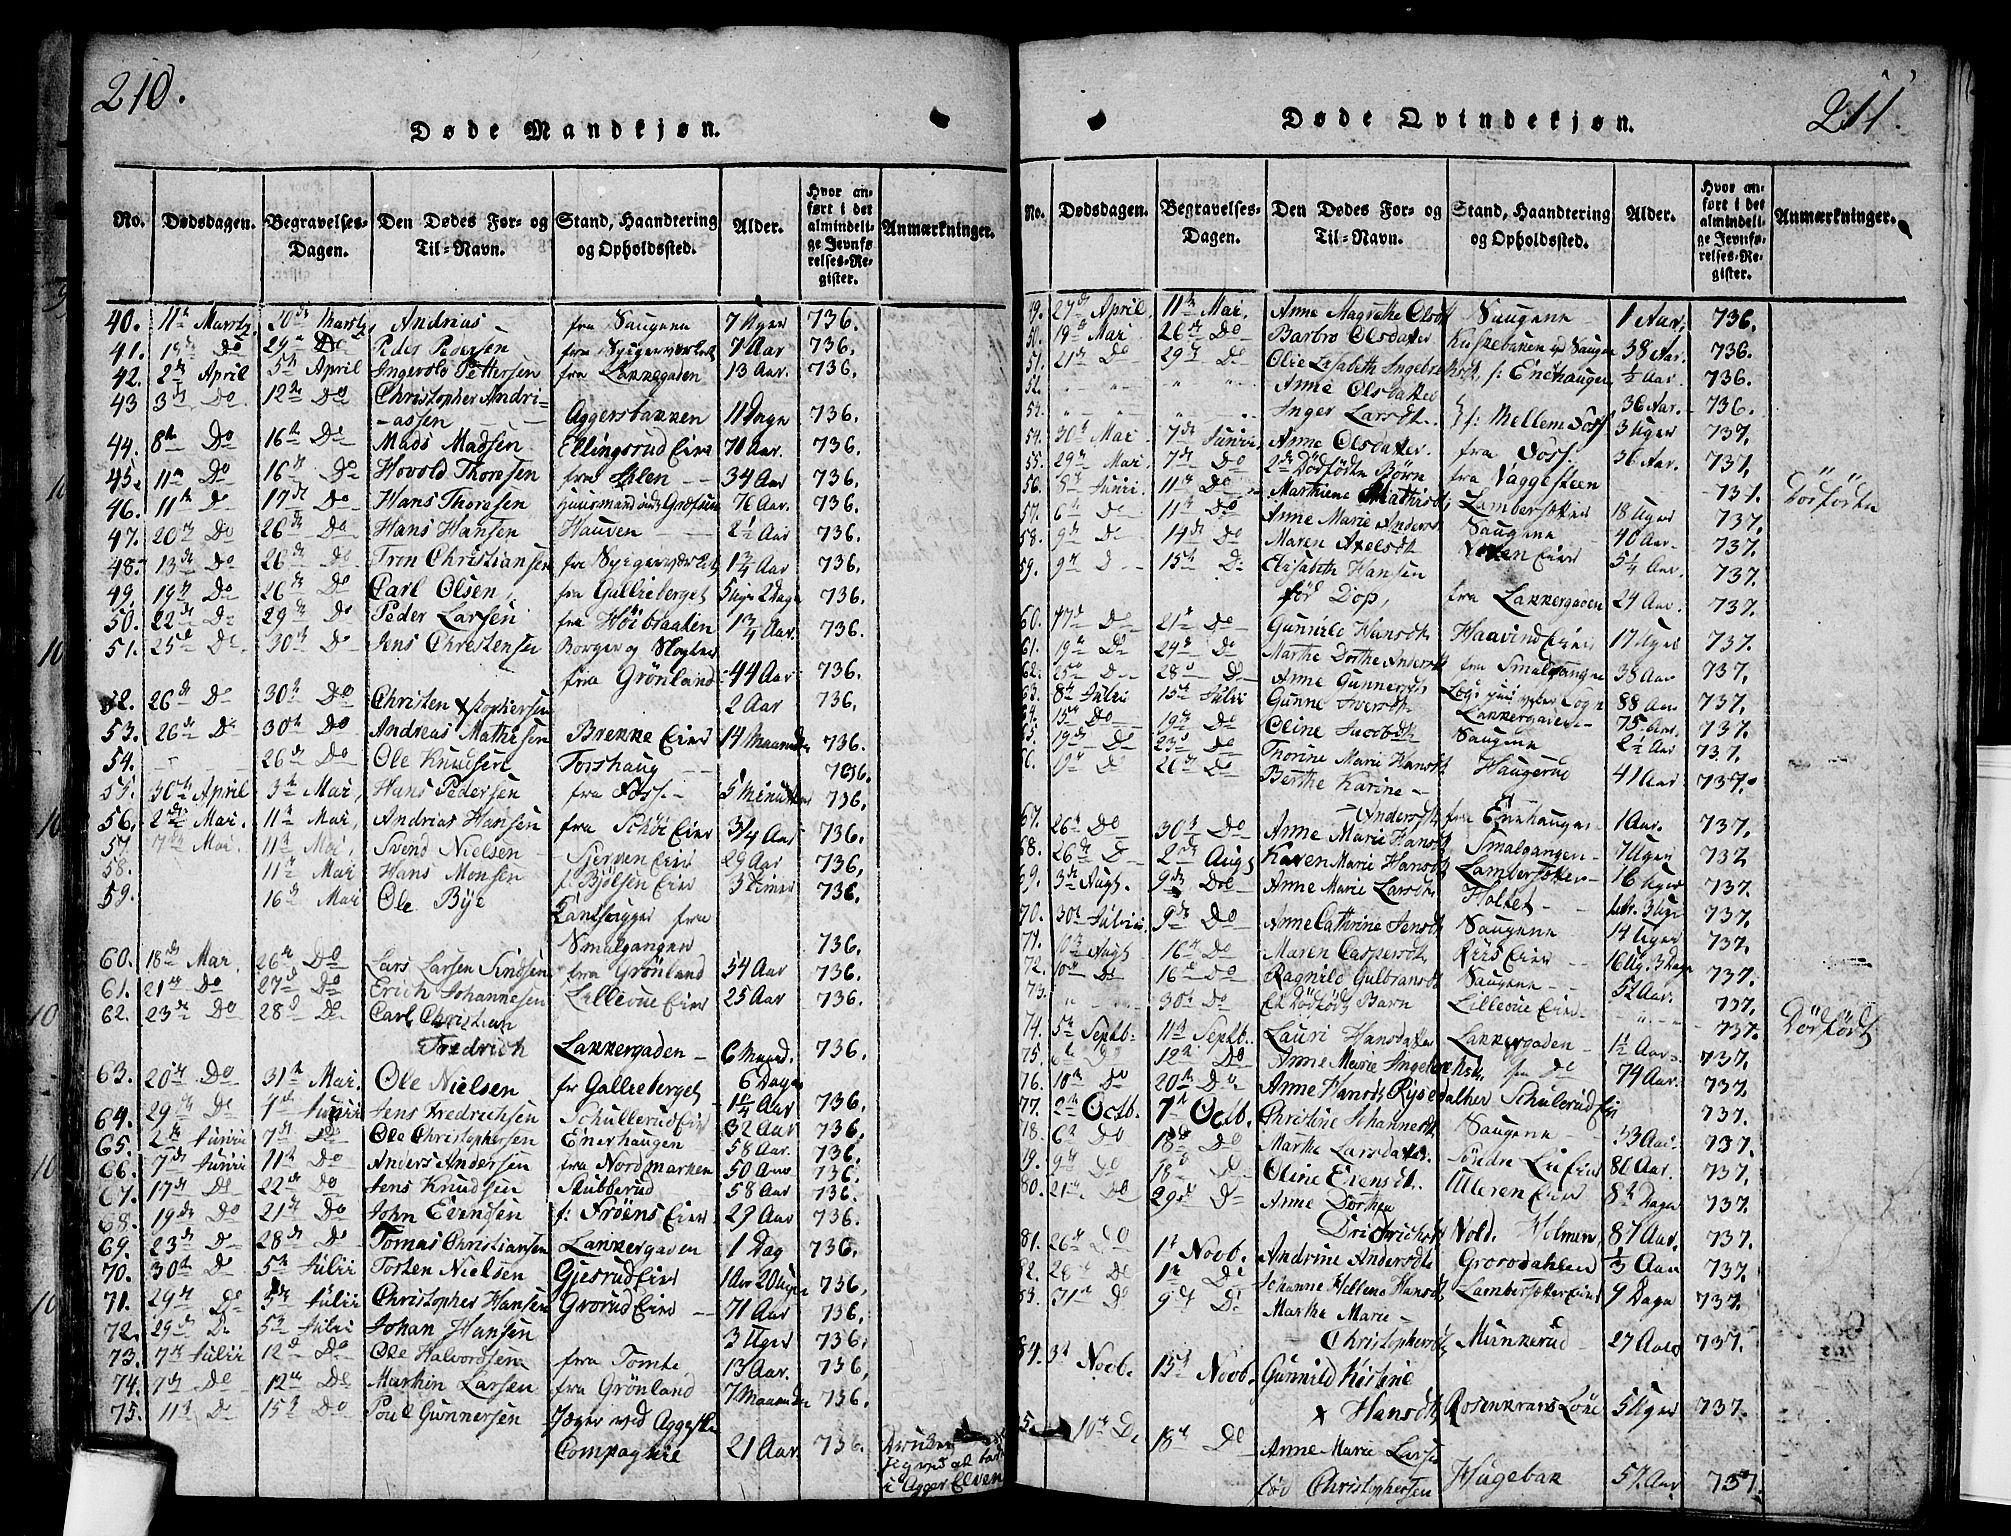 210.
Døde Mandkjøn.
No. Dødsdagen. Begravelses-Dagen. Den Dødes For- og Til-Navn. Stand, Haandtering og Opholdssted. Alder. Hvor anført i det almindelige Jevnførelses-Register. Anmærkninger.
40. 11te Martz 20de Martz Andrias fra Saugene 7 Uger 736.
41. Do 29 Do Peder Pedersen fra Spigerværket 7 Aar 736.
42. 2de April 5te April Ingevold Pettersen fra Lakkegaden 13 Aar. 736.
43 3de Do. 12te Do Christopher Andri=
-assen Aggersbakken 11 Dage 736.
44. 8de Do 16te Do Mads Madsen Ellingsrud Eier 70 Aar. 736.
45. 11te Do 16te Do Hovold Thoresen 34 Aar 736.
46. 11te D 17de Do Hans Thoresen Huusmand 76 Aar. 736.
47. 20de Do 26de Do Hans Hansen Hauven 2½ Aar 736.
48. 13de Do 26de Do Tron Christiansen fra Spigerværket 1¾ Aar 736.
49. 19de Do 26de Do Carl Olsen, fra Gallieberget 5 Uger 2 Dage 736.
50. 22de D 29de Do Peder Larsen fra Höibraaten 1¾ Aar. 736.
51. 25de D 30te Do Jens Christensen Borger og Slagter
fra Grönland 44 Aar 736.
52. 26de D 30te Do Christen Xstophersen 2 Aar 736.
53. 26de D 30te Do Andreas Mathisen Brekke Eier 14 Maaneder 736.
54. 26de Do Ole Knudsen Torshaug 736.
55. 30te April 3de Mai, Hans Pedersen fra Foss 5 Minutter 736.
56. 2den Mai. 11te Mai, Andrias Hansen fra Schöi Eier 3/4 Aar 736.
57 7de Mai. 11te Mai, Svend Nielsen Tjerven Eier 29 Aar 736,
58. 11te Mai Hans Monsen f. Bjölsen Eier 3 Timer 736.
59. 16te Mai Ole Bÿe fra
Smalgangen 736.
60. 18de Mai, 26de Do Lars Larsen fra Grönland 54 Aar 736.
61. 21de Do 27de Do Erich Johannesen Lilleoue Eier 25 Aar 736.
62. 23de Do 28de Do Carl Christian
Fredrich Lakkegaden 6 Maand. 736.
63. 20de Do 31te Mai. Ole Nielsen fr Gallieberget 6 Dage 736.
64. 29de Do 1ste Junii Jens Fredrichsen Schullerud Eier 1¼ Aar 736.
65. 2de Junii 7de Do Ole Christophersen Enerhaugen 32 Aar 736.
66. 7de Junii 11te Do Anders Andersen fra Nordmarken 58 Aar. 736.
67. 17de Do 22de Do Jens Knudsen Stubberud 50 Aar 736.
68. 19de Do 21de Do John Evensen f: Fröens Eier 58 Aar 736.
69. 23de D 28de Do Tomas Christiansen Lakkergaden 1 Dag 736.
70. 30te D 5te Julii Torsten Nielsen Gjesrud Eier 1 Aar 20 Uger 736,
71. 29de Do 5te Julii Christopher Hansen Grorud Eier 71 Aar 736,
72. 29de D 5te Julii Johan Hansen 3 Uger 736,
73. 7de Julii 12te Do Ole Halvordsen fra Tomte 13 Aar. 736,
74. 7de Do 12te Do Marthin Larsen fra Grönland 7 Maaneder 736.
75. 11te D 15de Do Poul Gunnersen Jæger ved Aggersh.
Compagnie 21 Aar 736. Druknet
i Agger Elven
211.
Døde Qvindekjøn.
No. Dødsdagen. Begravelses-Dagen. Den Dødes For- og Til-Navn. Stand, Haandtering og Opholdssted. Alder. Hvor anført i det almindelige Jevnførelses-Register. Anmærkninger.
49. 27de April, 11te Mai, Anne Magrethe Olsdt Saugene 1 Aar, 736.
50. 19de Mai 26de Do Barbro Olsdatter ved Saugen 38 Aar. 736.
51. 21de Do 29de Do Olie Lisabeth Ingebrethsdt, f: Enehaugen ½ Aar. 736.
52. " " " " Anne Olsdatter 36 Aar. 736.
Inger Larsdt. f: Mellem Foss 3 Uger 737.
54. 30te Mai 7de Junii Anne Olsdatter. fra Foss 36 Aar. 737.
55. 29de Mai 7de Do 2de Dödfödte Börn fra Vaggesteen 737. Dödfödte
56. 8de Junii 11te Do Marthine Mathisdt, Lambersæter 18 Uger 737.
57. 6te Do 11te Do Anne Marie Andersdt Saugene 40 Aar 737.
58. 9de Do 14de Do Maren Axelsdt Eier 5¼ Aar. 737.
59. 9de D 15de D Elisabeth Hansen
föd Dop, fra Lakkergaden 24 Aar. 737.
60. 17de Do 21de D Gunnild Hansdt Haavind Eier 17 Uger 737.
61. 19de Do 24de Do Marthe Dorthe Andersdt fra Smalgangen 38 Aar 737.
62. 25de D 28de D Anne Gunnersdt 88 Aar 737.
63. 8de Julii 15te Julii Gunne Iversdt Lakkergaden 75 Aar. 737.
64. 15de Do 19de Do Oline Jacobsdt Saugene 2½ Aar 737.
65. 19de D 23de Do Thorine Marie Hansdt Haugerud 41 Aar 737.
66. 19de D 26de Do Berthe Karine
Andersdt fra Enehaugen 1 Aar. 737.
67. 26de Do 30te Do Anne Marie Hansdt Smalgangen 7 Uger 737
68. 26de D 2den Augs Karen Marie Hansdt Lambersæter 16 Uger 737.
69. 3de Augs. 9de Do Anne Marie Larsdt Holtet 1 Ar. 3 Uger 737.
70. 30te Julii 9de Do Anne Cathrine Jensdt Saugene 14 Uger 737.
71. 10de Augs. 16de Do Maren Caspersdt Riis Eier 16 Ug. 3 Dage 737.
72. 10de Do 16de Do Ragnild Gulbransdt Saugene 52 Aar. 737.
73. " 30te Do Et Dödfödt Barn Lilleoue Eier " 737. Dödfödt
74. 5te Septb. 11te Septb. Lauri Hansdatter Lakkergaden 1½ Aar 737.
75. 6te Do 12te Do Anne Marie Ingebrethsdt. fra Do 74 Aar. 737.
76. 10de Do 20de Do Anne Hansdt Schulerud Eier 737.
77. 2de Octb. 7de Octb. Christine Johannesdt Saugene 33 Aar 737.
78. 6te Do 18de Do Marthe Larsdatter. Söndre Lie Eier 80 Aar. 737.
79. 9de Do 18de D Oline Evensdt. Ulleren Eier 8te Dage 737.
80. 21de Do 29de D Anne Dorthea
Dridrichsdt Nold. Holmen, 87 Aar. 737.
81. 26de Do 1te Novb. Andrine Andersdt Grorodahlen ⅓ Aar 737.
82. 28de Do 1te Do Johanne Hellene Hansdt Lambersæter Eier 9 Dage 737.
83. 31te D 9de Do Marthe Marie
Christophersdt Munkerud 27 Aar 737.
84. 3de Novb. 15de Novb. Gunnild Kistine
Hansdt Rosenkrans Löke 5 Uger 737.
10de Do 18de Do Anne Marie Larsen
föd Christophersen Hagebak 57 Aar 737.